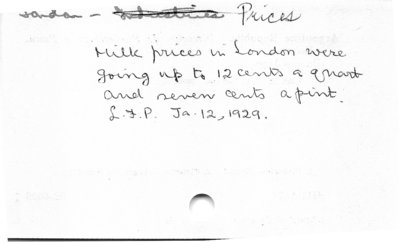 London - Prices
Milk prices in London were
going up to 12 cents a quart
and seven cents a pint.
L.F.P. Ja. 12, 1929.